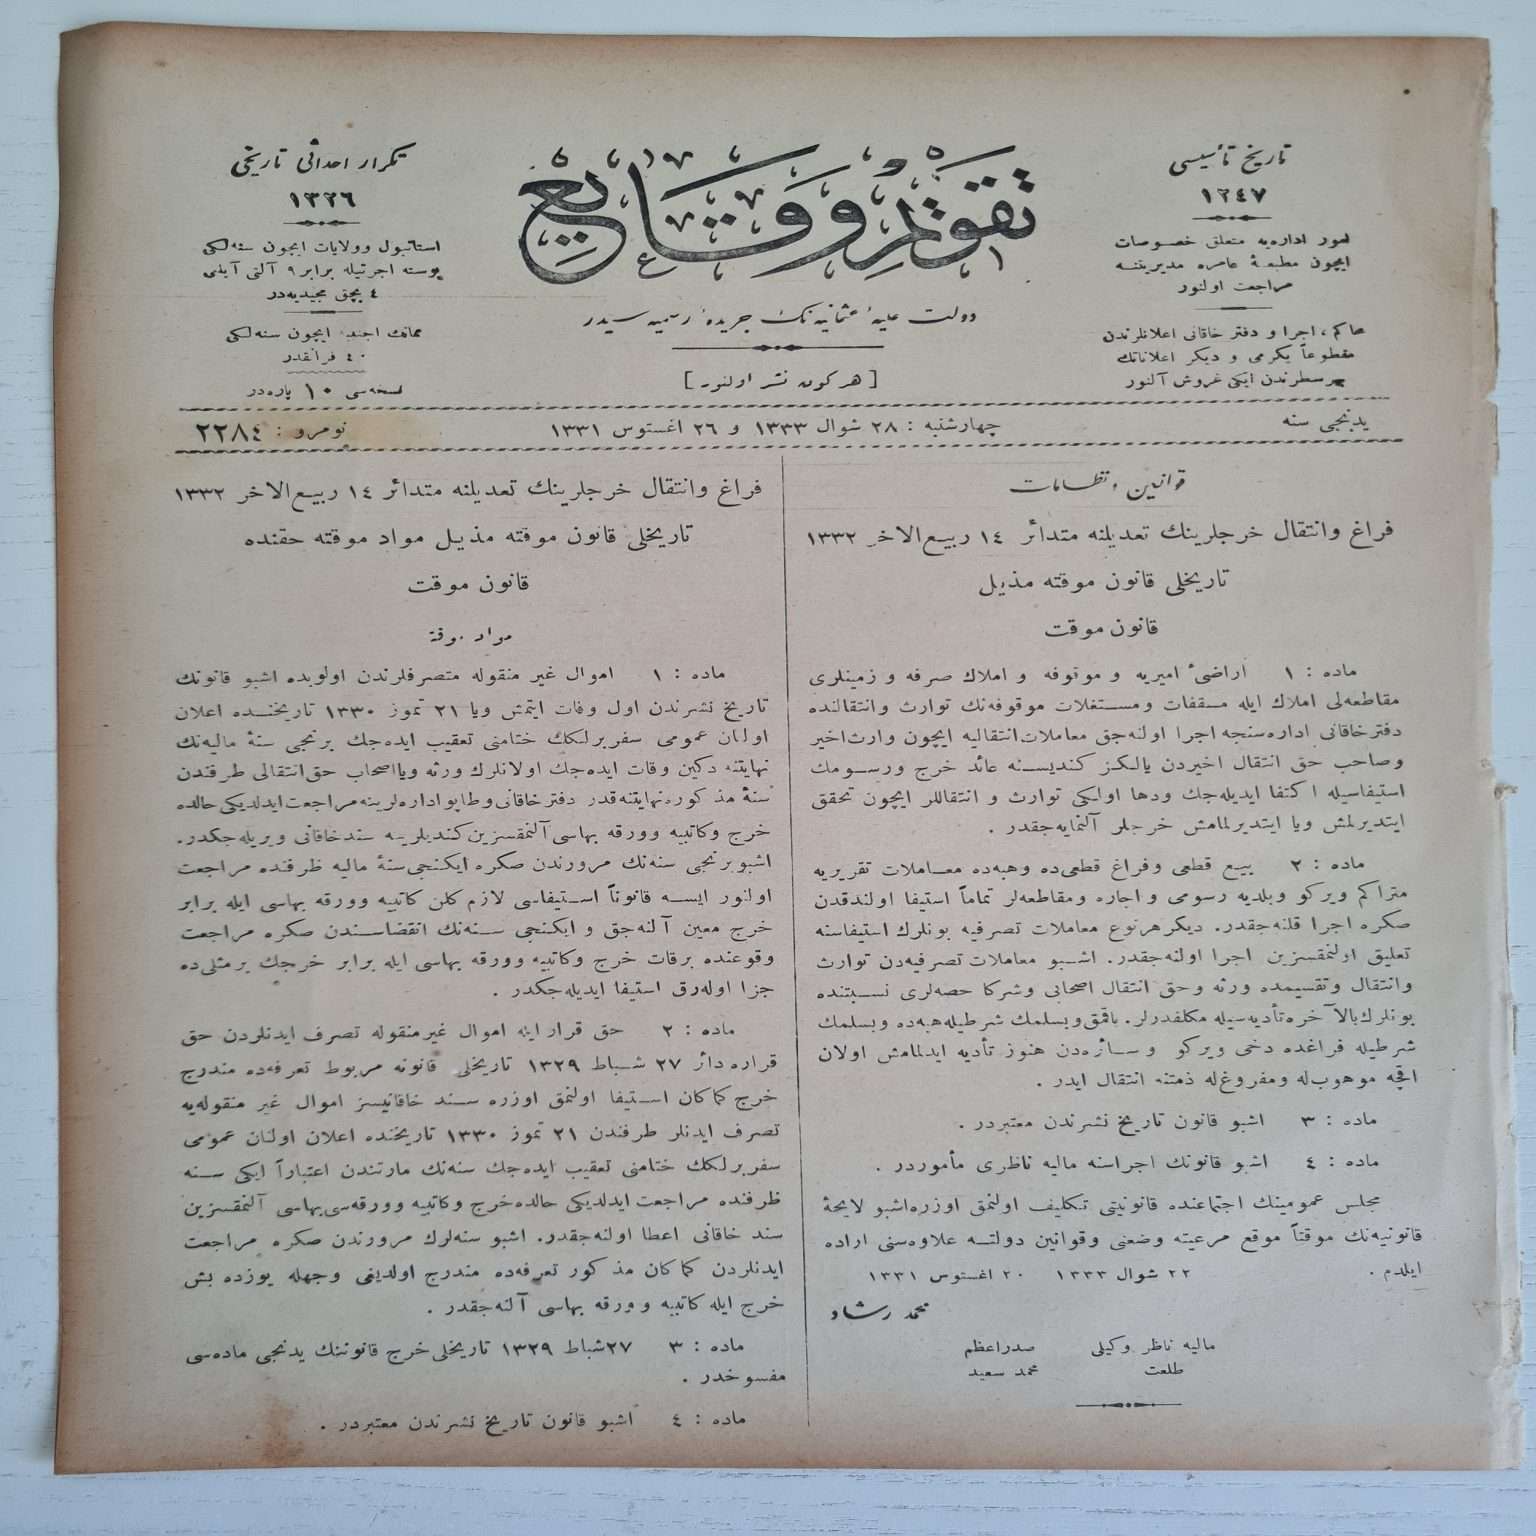 تاریخ تأسیسی
١٢٤٧
امور اداره‌یه متعلق خصوصات
ایچون مطبعهٔ عامره مدیریتنه
مراجعت اولنور
محاكم ، اجرا و دفتر خاقانی اعلانلرندن
مقطوعاً یكرمی و دیكر اعلاناتك
بهرسطرندن ایكی غروش آلنور
تقویم وقایع
دولت علیهٔ عثمانیه نك جریدهٔ رسمیه سیدر
[ هركون نشر اولنور ]
تكرار احداثی تاریخی
١٣٢٦
استانبول وولایات ایچون سنه‌لكی
پوسته اجرتیله برابر ٩ آلتی آیلغی
٤ بچق مجیدیه‌در
ممالك اجنبیه ایچون سنه‌لكی
٤٠ فرانقدر
نسخه‌سی ١٠ پاره‌در
یدنجی سنه
چهارشنبه : ٢٨ شوال ١٣٣٣ و ٢٦ اغستوس ١٣٣١
نومرو : ٢٢٨٤
قوانین و نظامات
فراغ وانتقال خرجلرینك تعدیلنه متدائر ١٤ ربیع‌الاخر ١٣٣٢
تاریخلی قانون موقته مذیل
قانون موقت
ماده : ١ اراضیٔ امیریه و موقوفه و املاك صرفه و زمینلری
مقاطعه‌لی املاك ایله مسقفات ومستغلات موقوفه‌نك توارث وانتقالنده
دفترخاقانی اداره‌سنجه اجرا اولنه‌جق معاملات‌انتقالیه ایچون وارث‌اخیر
وصاحب حق انتقال اخیردن یالكز كندیسنه عائد خرج ورسومك
استیفاسیله اكتفا ایدیله‌جك ودها اولكی توارث و انتقاللر ایچون تحقق
ایتدیرلمش ویا ایتدیرلمامش خرجلر آلنمایه‌جقدر .
ماده : ٢ بیع قطعی وفراغ قطعی‌ده وهبه‌ده معاملات تقریریه
متراكم ویركو وبلدیه رسومی و اجاره ومقاطعه‌لر تماماً استیفا اولندقدن
صكره اجرا قلنه‌جقدر. دیكرهرنوع معاملات تصرفیه بونلرك استیفاسنه
تعلیق اولنمقسزین اجرا اولنه‌جقدر. اشبو معاملات تصرفیه‌دن توارث
وانتقال وتقسیمده ورثه وحق انتقال اصحابی وشركا حصه‌لری نسبتنده
بونلرك‌بالآخره‌تأدیه‌سیله مكلفدرلر. باقمق‌وبسلمك شرطیله‌هبه‌ده وبسلمك
شرطیله فراغده دخی ویركو وسائره‌دن هنوز تأدیه ایدلمامش اولان
اقچه موهوب‌له ومفروغ‌له ذمتنه انتقال ایدر .
ماده : ٣ اشبو قانون تاریخ نشرندن معتبردر .
ماده : ٤ اشبو قانونك اجراسنه مالیه ناظری مأموردر .
مجلس عمومینك اجتماعنده قانونیتی تكلیف اولنمق اوزره‌اشبو لایحهٔ
قانونیه‌نك موقتاً موقع مرعیته وضعنی وقوانین دولته علاوه‌سنی اراده
ایلدم .
٢٢ شوال ١٣٣٣ ٢٠ اغستوس ١٣٣١
محمد رشاد
مالیه ناظر وكیلی صدراعظم
طلعت محمد سعید
فراغ وانتقال خرجلرینك تعدیلنه متدائر ١٤ ربیع‌الاخر ١٣٣٢
تاریخلی قانون موقته مذیل مواد موقته حقنده
قانون موقت
مواد موقته
ماده : ١ اموال غیر منقوله متصرفلرندن اولوبده اشبو قانونك
تاریخ نشرندن اول وفات ایتمش ویا ٢١ تموز ١٣٣٠ تاریخنده اعلان
اولنان عمومی سفربرلكك ختامنی تعقیب ایده‌جك برنجی سنهٔ مالیه‌نك
نهایتنه دكین وفات ایده‌جك اولانلرك ورثه ویااصحاب حق‌انتقالی طرفندن
سنهٔ مذكوره‌نهایتنه‌قدر دفترخاقانی‌وطاپواداره‌لرینه‌مراجعت‌ایدلدیكی حالده
خرج وكاتبیه وورقه بهاسی آلنمقسزین‌كندیلرینه سندخاقانی ویریله‌جكدر.
اشبوبرنجی سنه‌نك مرورندن صكره ایكنجی‌سنهٔ مالیه ظرفنده مراجعت
اولنور ایسه قانوناً استیفاسی لازم كلن كاتبیه وورقه بهاسی ایله برابر
خرج معین آلنه‌جق و ایكنجی سنه‌نك انقضاسندن صكره مراجعت
وقوعنده برقات خرج وكاتبیه وورقه بهاسی ایله برابر خرجك برمثلی‌ده
جزا اوله‌رق استیفا ایدیله‌جكدر .
ماده : ٢ حق قرار ایله اموال غیرمنقوله تصرف ایدنلردن حق
قراره‌دائر ٢٧ شباط ١٣٢٩ تاریخلی قانونه مربوط تعرفه‌ده مندرج
خرج كماكان استیفا اولنمق اوزره سند خاقانیسز اموال غیر منقوله‌یه
تصرف ایدنلر طرفندن ٢١ تموز ١٣٣٠ تاریخنده اعلان اولنان عمومی
سفربرلكك ختامنی تعقیب ایده‌جك سنه‌نك مارتندن اعتباراً ایكی سنه
ظرفنده مراجعت ایدلدیكی حالده‌خرج وكاتبیه وورقه‌سی‌بهاسی آلنمقسزین
سند خاقانی اعطا اولنه‌جقدر. اشبو سنه‌لرك مرورندن صكره مراجعت
ایدنلردن كماكان مذكور تعرفه‌ده مندرج اولدیغی وجهله یوزده بش
خرج ایله كاتبیه وورقه بهاسی آلنه‌جقدر .
ماده : ٣ ٢٧شباط ١٣٢٩ تاریخلی‌خرج قانوننك یدنجی ماده‌سی
مفسوخدر .
ماده : ٤ اشبو قانون تاریخ نشرندن معتبردر .